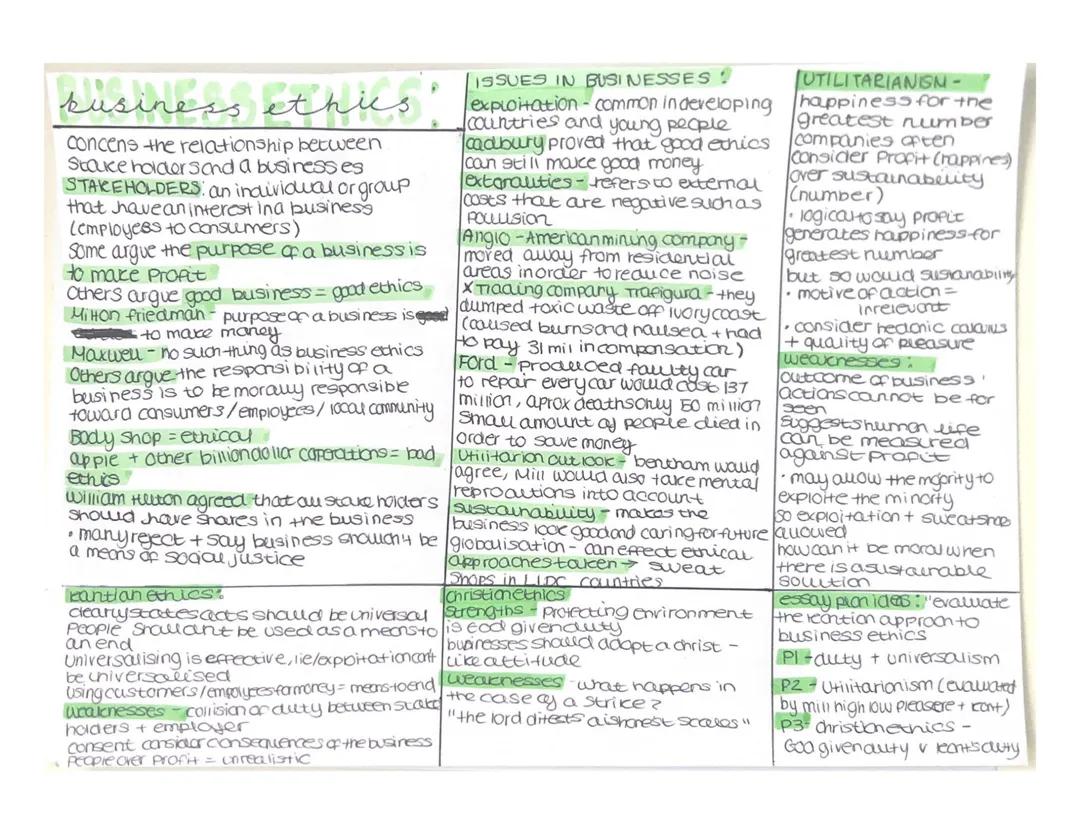 BUSINESS ETHICS:
business ethics
Concens the relationship between
Stake holders and a business es
STAKEHOLDERS: an individual or group
that have an interest in a business
(employees to consumers)
Some argue the purpose of a business is
to make Profit
Others argue good business = good ethics
Milton friedman - purpose of a business is
to make money
Maxwell - no such thing as business ethics
Others argue the responsibility of a
business is to be morally responsible
toward consumers/employees/local community
Body shop = ethical
apple + other billion dollar coperations = bad
ethics
William Hutton agreed that all stake holders
should have shares in the business
• many reject + say business shouldn't be
a means of social justice
ISSUES IN BUSINESSES:
exploitation - common in developing
countries and young people
cadbury proved that good ethics
can still make good money
extoralities - refers to external
costs that are negative such as
pollusion
Anglo-American mining company -
moved away from residential
areas in order to reduce noise
x Trading company Trafigura - they
dumped toxic waste off ivory coast
(caused burns and nausea + had
to pay 31 mil in compensation)
Ford - Produced faulty car
to repair every car would cost 137
million, aprox deaths only 50 million
Small amount of people died in
order to save money
Utilitarion outlook - bentham would
agree, Mill would also take mental
reproautions into account
sustainability - makes the
business look good and caring for future
globalisation - can effect ethical
approaches taken → sweat
shops in LIDC countries
UTILITARIANISM -
happiness for the
greatest number
companies often
consider Profit (happines)
over sustainability
(number)
• logical to say profit
generates happiness for
greatest number
but so would sustanability
• motive of action =
irrelevant
• consider hedonic calculus
+ quality of pleasure
weaknesses:
outcome of business'
actions cannot be for
seen
suggests human life
can be measured
against profit
• may allow the majority to
exploite the minority
so exploitation + sweatshops
allowed
how can it be moral when
there is a sustainable
solution
kantian ethics:
cleary states acts should be universal
People Shouldn't be used as a means to
an end
Universalising is effective, lie/exploitation can't
be universalised
Using customers/employees for money = means to end
weaknesses - collision of duty between stake
holders + employer
consent consider consequences of the business
People over Profit = unrealistic
christian ethics
strengths - protecting environment
is God given duty
businesses should adopt a christ-
like attitude
weaknesses - what happens in
the case of a strike?
"the lord ditests dishonest scales"
essay plan ideas: "evaluate
the kantion approach to
business ethics
P1 - duty + universalism
P2 - Utilitarionism (evaluated
by mill high low pleasere + kant)
P3 - christian ethics -
GOD given duty v kant's duty